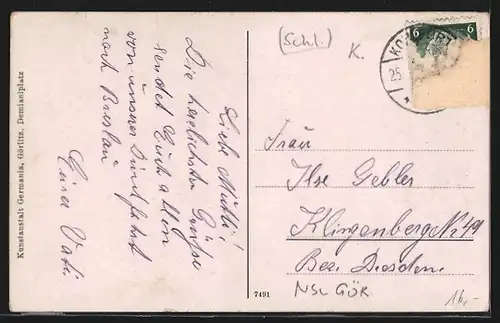 Kunstanstalt Germania, Görlitz, Demianiplatz
Liebe Mutti!
Die herzlichsten Grüße
sendet Euch allen
von unserer Dienstfahrt
nach Breslau
Euer Vati.
(Schl.)
K.
6 6
25
Frau
Ilse Gebler
Klingenberg Nr. 49
Bez. Dresden.
7491
NSL GÖR
16,-